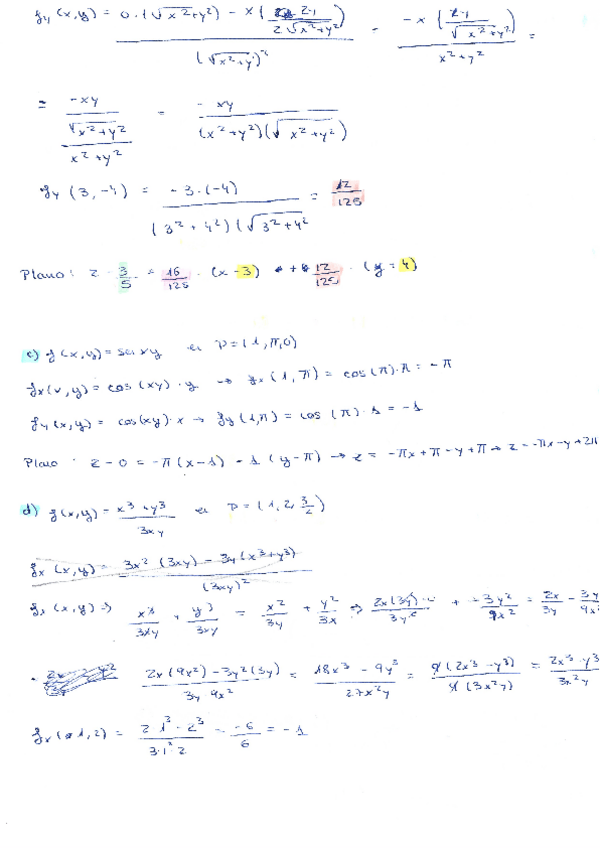 fy (x,y) = 0·(√x²+y²) - x (2y / 2√x²+y²) / (√x²+y²)² = -x (2y / √x²+y²) / x²+y² =
= -xy / √x²+y² / x²+y² = - xy / (x²+y²)(√x²+y²)
fy (3,-4) = -3·(-4) / (3²+4²)(√3²+4² = 12/125
Plano: z - 3/5 = 16/125 · (x-3) + 12/125 · (y = 4)
c) f(x,y) = sen xy en P=(1,π,0)
fx(x,y) = cos (xy) · y → fx (1,π) = cos(π)·π = -π
fy (x,y) = cos(xy)·x → fy (1,π) = cos (π)·1 = -1
Plano : z-0 = -π(x-1) - 1 (y-π) → z = -πx+π-y+π → z = -πx-y+2π
d) f(x,y) = x³+y³ / 3xy en P=(1,2,3/2)
fx (x,y) = 3x² (3xy) - 3y(x³+y³) / (3xy)²
fx (x,y) → x³/3xy + y³/3xy = x²/3y + y²/3x → 2x(3y) / 3y² + -3y² / 9x² = 2x/3y - 3y / 9x
2x(9x²) - 3y²(3y) / 3y 9x² = 18x³ - 9y³ / 27x²y = 9(2x³-y³) / 9(3x²y) = 2x³-y³ / 3x²y
fx (1,2) = 2·1³-2³ / 3·1²·2 = -6/6 = -1